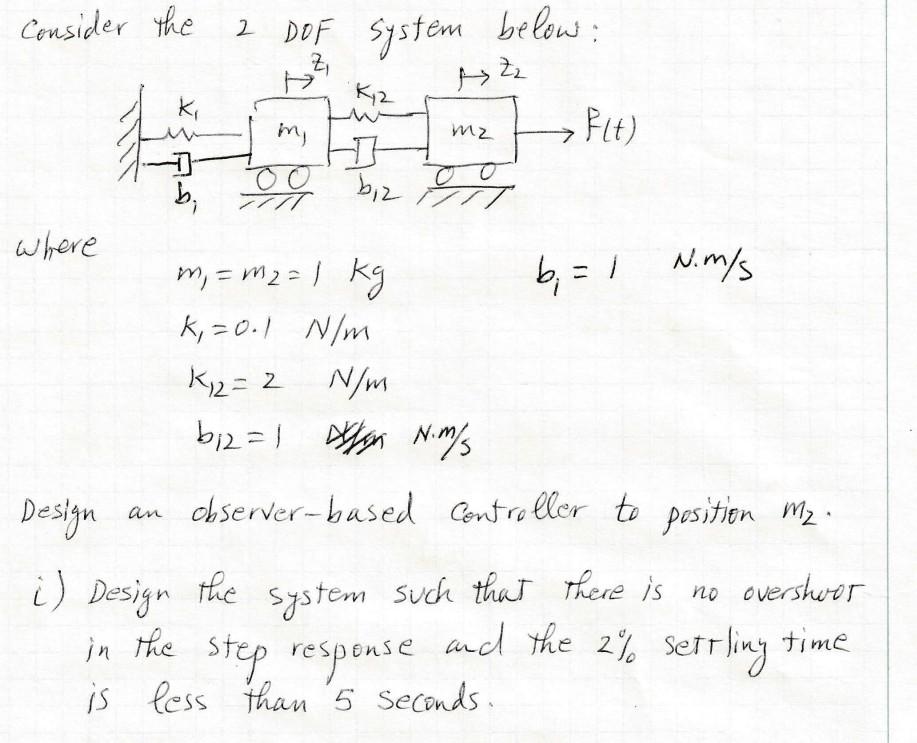 Consider the 2 DOF system below:
z₁ z₂
k₁ k₁₂
m₁ m₂ f(t)
b₁ b₁₂
where
m₁ = m₂ = 1 kg b₁ = 1 N.m/s
k₁ = 0.1 N/m
k₁₂ = 2 N/m
b₁₂ = 1 N.m/s
Design an observer-based controller to position m₂.
i) Design the system such that there is no overshoot
in the step response and the 2% settling time
is less than 5 seconds.